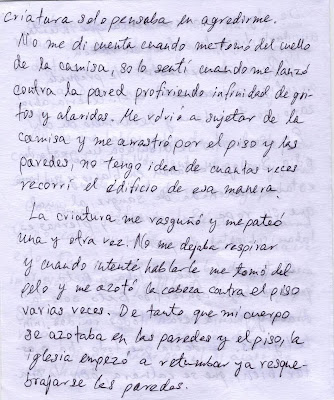 criatura solo pensaba en agredirme.
No me di cuenta cuando me tomó del cuello
de la camisa, solo sentí cuando me lanzó
contra la pared profiriendo infinidad de gri-
tos y alaridos. Me volvió a sujetar de la
camisa y me arrastró por el piso y las
paredes, no tengo idea de cuantas veces
recorrí el edificio de esa manera.
La criatura me rasguñó y me pateó
una y otra vez. No me dejaba respirar
y cuando intenté hablarle me tomó del
pelo y me azotó la cabeza contra el piso
varias veces. De tanto que mi cuerpo
se azotaba en las paredes y el piso, la
iglesia empezó a retumbar y a resque-
brajarse las paredes.